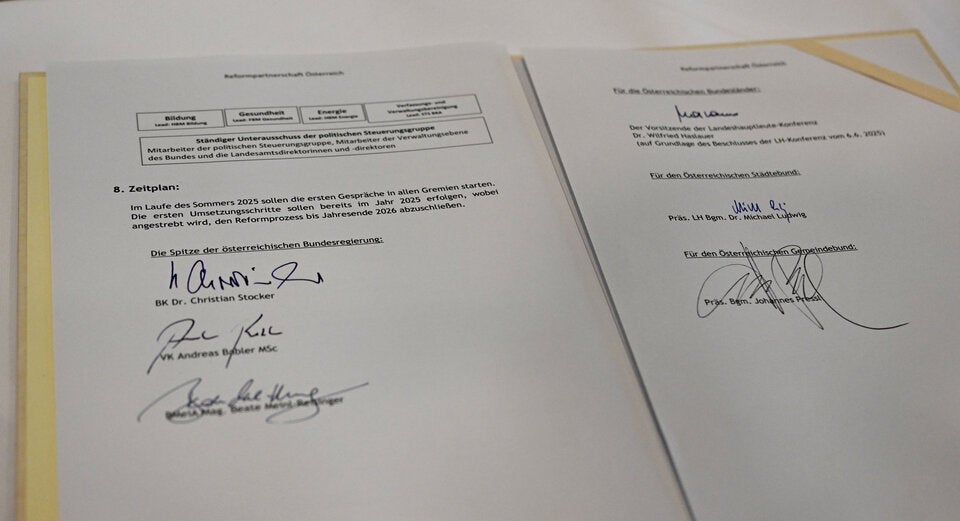 Reformpartnerschaft Österreich
Bildung
Lead: HBM Bildung
Gesundheit
Lead: FBM Gesundheit
Energie
Lead: HBM Energie
Verfassungs- und
Verwaltungsbereinigung
Lead: STS BKA
Ständiger Unterausschuss der politischen Steuerungsgruppe
Mitarbeiter der politischen Steuerungsgruppe, Mitarbeiter der Verwaltungsebene
des Bundes und die Landesamtsdirektorinnen und -direktoren
8. Zeitplan:
Im Laufe des Sommers 2025 sollen die ersten Gespräche in allen Gremien starten.
Die ersten Umsetzungsschritte sollen bereits im Jahr 2025 erfolgen, wobei
angestrebt wird, den Reformprozess bis Jahresende 2026 abzuschließen.
Die Spitze der österreichischen Bundesregierung:
BK Dr. Christian Stocker
VK Andreas Babler MSc
BMeiA Mag. Beate Meinl-Reisinger
Reformpartnerschaft Österreich
Für die Österreichischen Bundesländer:
Der Vorsitzende der Landeshauptleute-Konferenz
Dr. Wilfried Haslauer
(auf Grundlage des Beschlusses der LH-Konferenz vom 6.6. 2025)
Für den Österreichischen Städtebund:
Präs. LH Bgm. Dr. Michael Ludwig
Für den Österreichischen Gemeindebund:
Präs. Bgm. Johannes Pressl